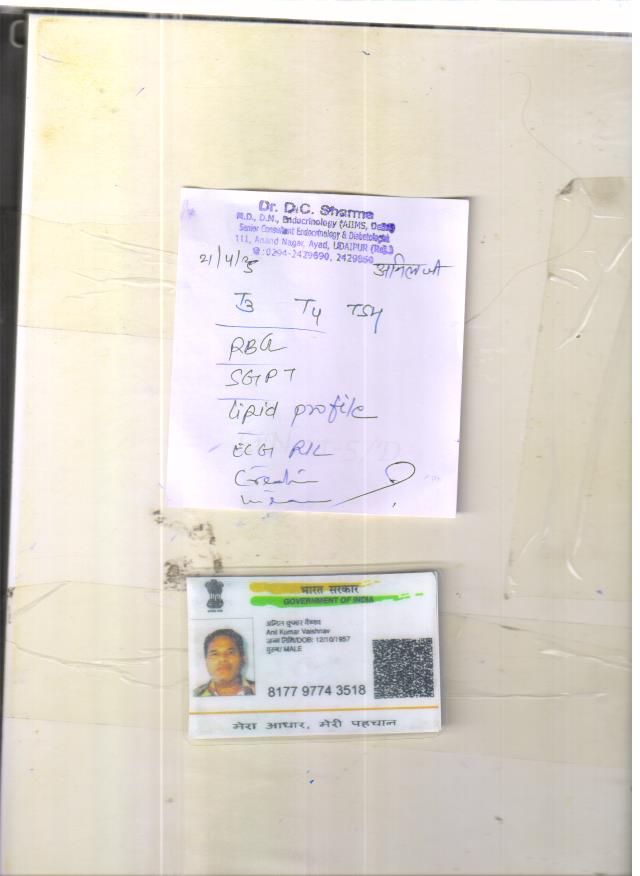 Dr. D.C. Sharma
M.D., D.M., Endocrinology (AIIMS, Delhi)
Senior Consultant Endocrinology & Diabetologist
111, Anand Nagar, Ayad, UDAIPUR (Raj.)
☎:0294-2429690, 2429860
21/4/
अनिल जी
T3 T4 TSH
SGPT
lipid profile
ECG
भारत सरकार
GOVERNMENT OF INDIA
अनिल कुमार वैष्णव
Anil Kumar Vaishnav
जन्म तिथि/DOB: 12/10/1957
पुरुष/ MALE
8177 9774 3518
मेरा आधार, मेरी पहचान